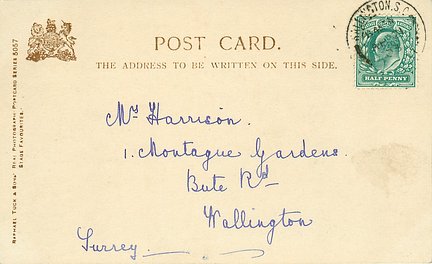 POST CARD.
THE ADDRESS TO BE WRITTEN ON THIS SIDE.
HALF PENNY
RAPHAEL TUCK & SONS' REAL PHOTOGRAPH POSTCARD SERIES 5057
STAGE FAVOURITES.
Mrs Harrison.
1. Montague Gardens.
Bute Rd
Wallington
Surrey